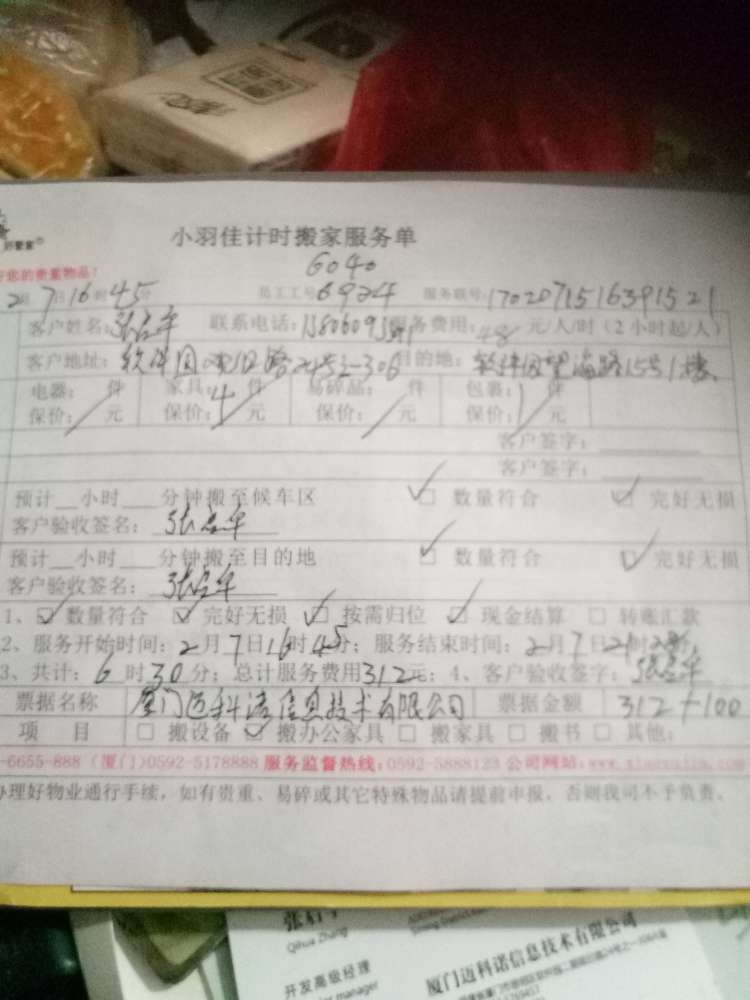 好管家
小羽佳计时搬家服务单
好您的贵重物品！
6040
2月7日16时45分 员工工号：6924 服务联号：1702071516391521
客户姓名： 联系电话： 服务费用：48元/人/时（2小时起/人）
客户地址：软件园观日路 目的地：软件园望海路15号1楼
电器： 件 家具：4件 易碎品： 件 包裹：1件
保价： 元 保价： 元 保价： 元 保价： 元
客户签字：
客户签字：
预计__小时___分钟搬至候车区 数量符合 完好无损
客户验收签名：
预计__小时___分钟搬至目的地 数量符合 完好无损
客户验收签名：
1、数量符合 完好无损 按需归位 现金结算 转账汇款
2、服务开始时间：2月7日16时45分；服务结束时间：2月7日
3、共计：6时30分；总计服务费用312元；4、客户验收签字：
票据名称 厦门迈科诺信息技术有限公司 票据金额 312+100
项目 搬设备 搬办公家具 搬家具 搬书 其他：
-6655-888（厦门）0592-5178888 服务监督热线：0592-5888123 公司网站：
办理好物业通行手续，如有贵重、易碎或其它特殊物品请提前申报，否则我司不予负责。
Qihua Zhang
开发高级经理
manager
厦门迈科诺信息技术有限公司